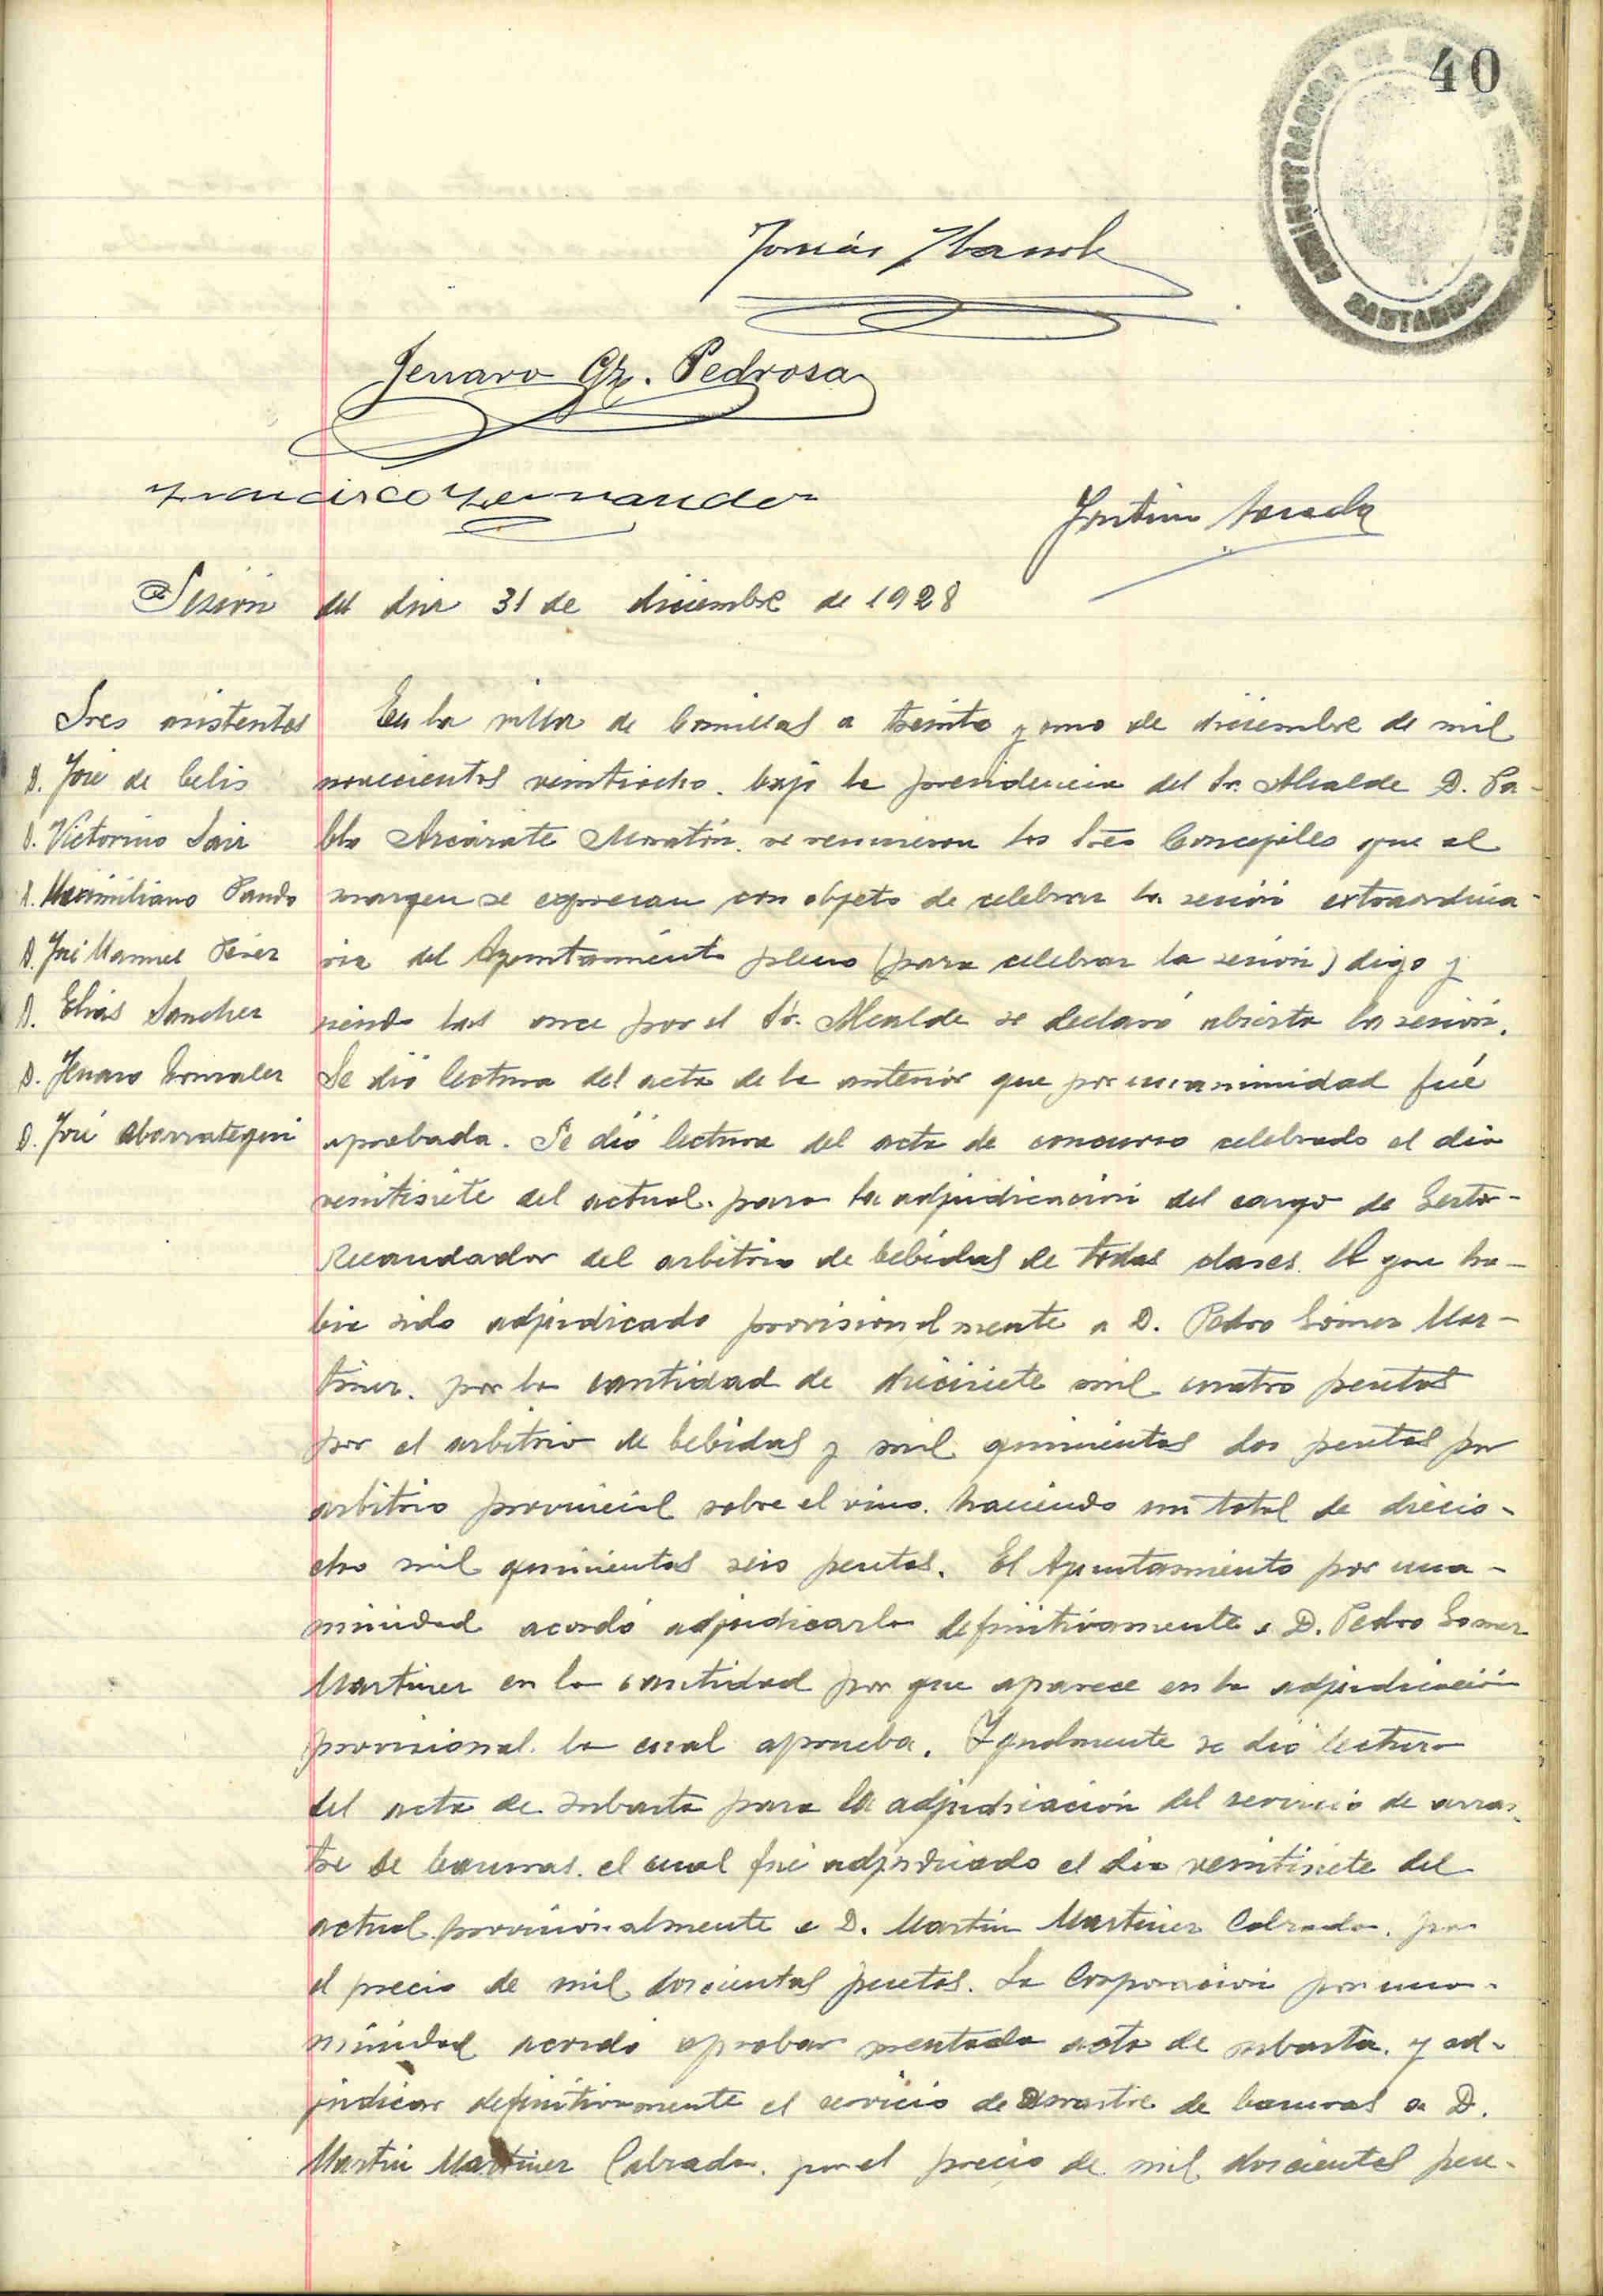 40
ADMINISTRACION DE RENTAS PUBLICAS
SANTANDER
Tomás
Jenaro Gz. Pedrosa
Francisco Fernandez
Sesión del dia 31 de diciembre de 1928
Sres asistentes
D. José de Celis
D. Victorino Saiz
D. Maximiliano Pando
D. José Manuel Pérez
D. Elias Sanchez
D. Jenaro Gonzalez
D. José Abarrategui
En la villa de Comillas a treinta y uno de diciembre de mil
novecientos veintiocho. bajo la presidencia del Sr. Alcalde D. Pa-
blo Arcárate Moratón. se reunieron los Sres Concejales que al
margen se expresan con objeto de celebrar la sesión extraordina-
ria del Ayuntamiento pleno (para celebrar la sesión) digo y
siendo las once por el Sr. Alcalde se declaró abierta la sesión.
Se dió lectura del acta de la anterior que por unanimidad fué
aprobada. Se dió lectura del acta de concurso celebrado el dia
veintisiete del actual. para la adjudicación del cargo de Gestor-
Recaudador del arbitrio de bebidas de todas clases. el que ha-
bia sido adjudicado provisionalmente a D. Pedro Gómez Mar-
tinez. por la cantidad de diecisiete mil cuatro pesetas
por el arbitrio de bebidas y mil quinientas dos pesetas por
arbitrio provincial sobre el vino. haciendo un total de diecio-
cho mil quinientas seis pesetas. El Ayuntamiento por una-
nimidad acordó adjudicarla definitivamente a D. Pedro Gomez
Martinez en la cantidad por que aparece en la adjudicación
provisional. la cual aprueba. Igualmente se dió lectura
del acta de subasta para la adjudicación del servicio de arras-
tre de basuras. el cual fué adjudicado el dia veintisiete del
actual provisionalmente a D. Martin Martinez Cobrada. por
el precio de mil doscientas pesetas. La Corporación por una-
nimidad acordó aprobar mentada acta de subasta. y ad-
judicar definitivamente el servicio de arrastre de basuras a D.
Martin Martinez Cobrada. por el precio de mil doscientas pese-